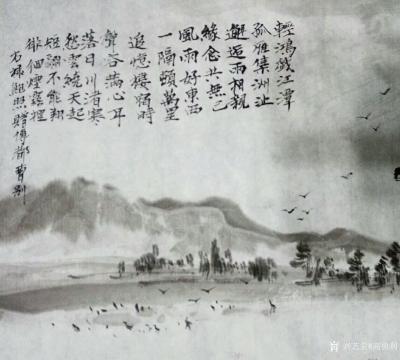 輕鴻戲江潭
孤雁集洲沚
邂逅兩相親
緣念共無已
風雨好東西
一隔頓萬里
追憶棲宿時
聲容滿心耳
落日川渚寒
愁雲繞天起
短翮不能翔
徘徊煙霧裡
右錄鮑照贈傅都曹別